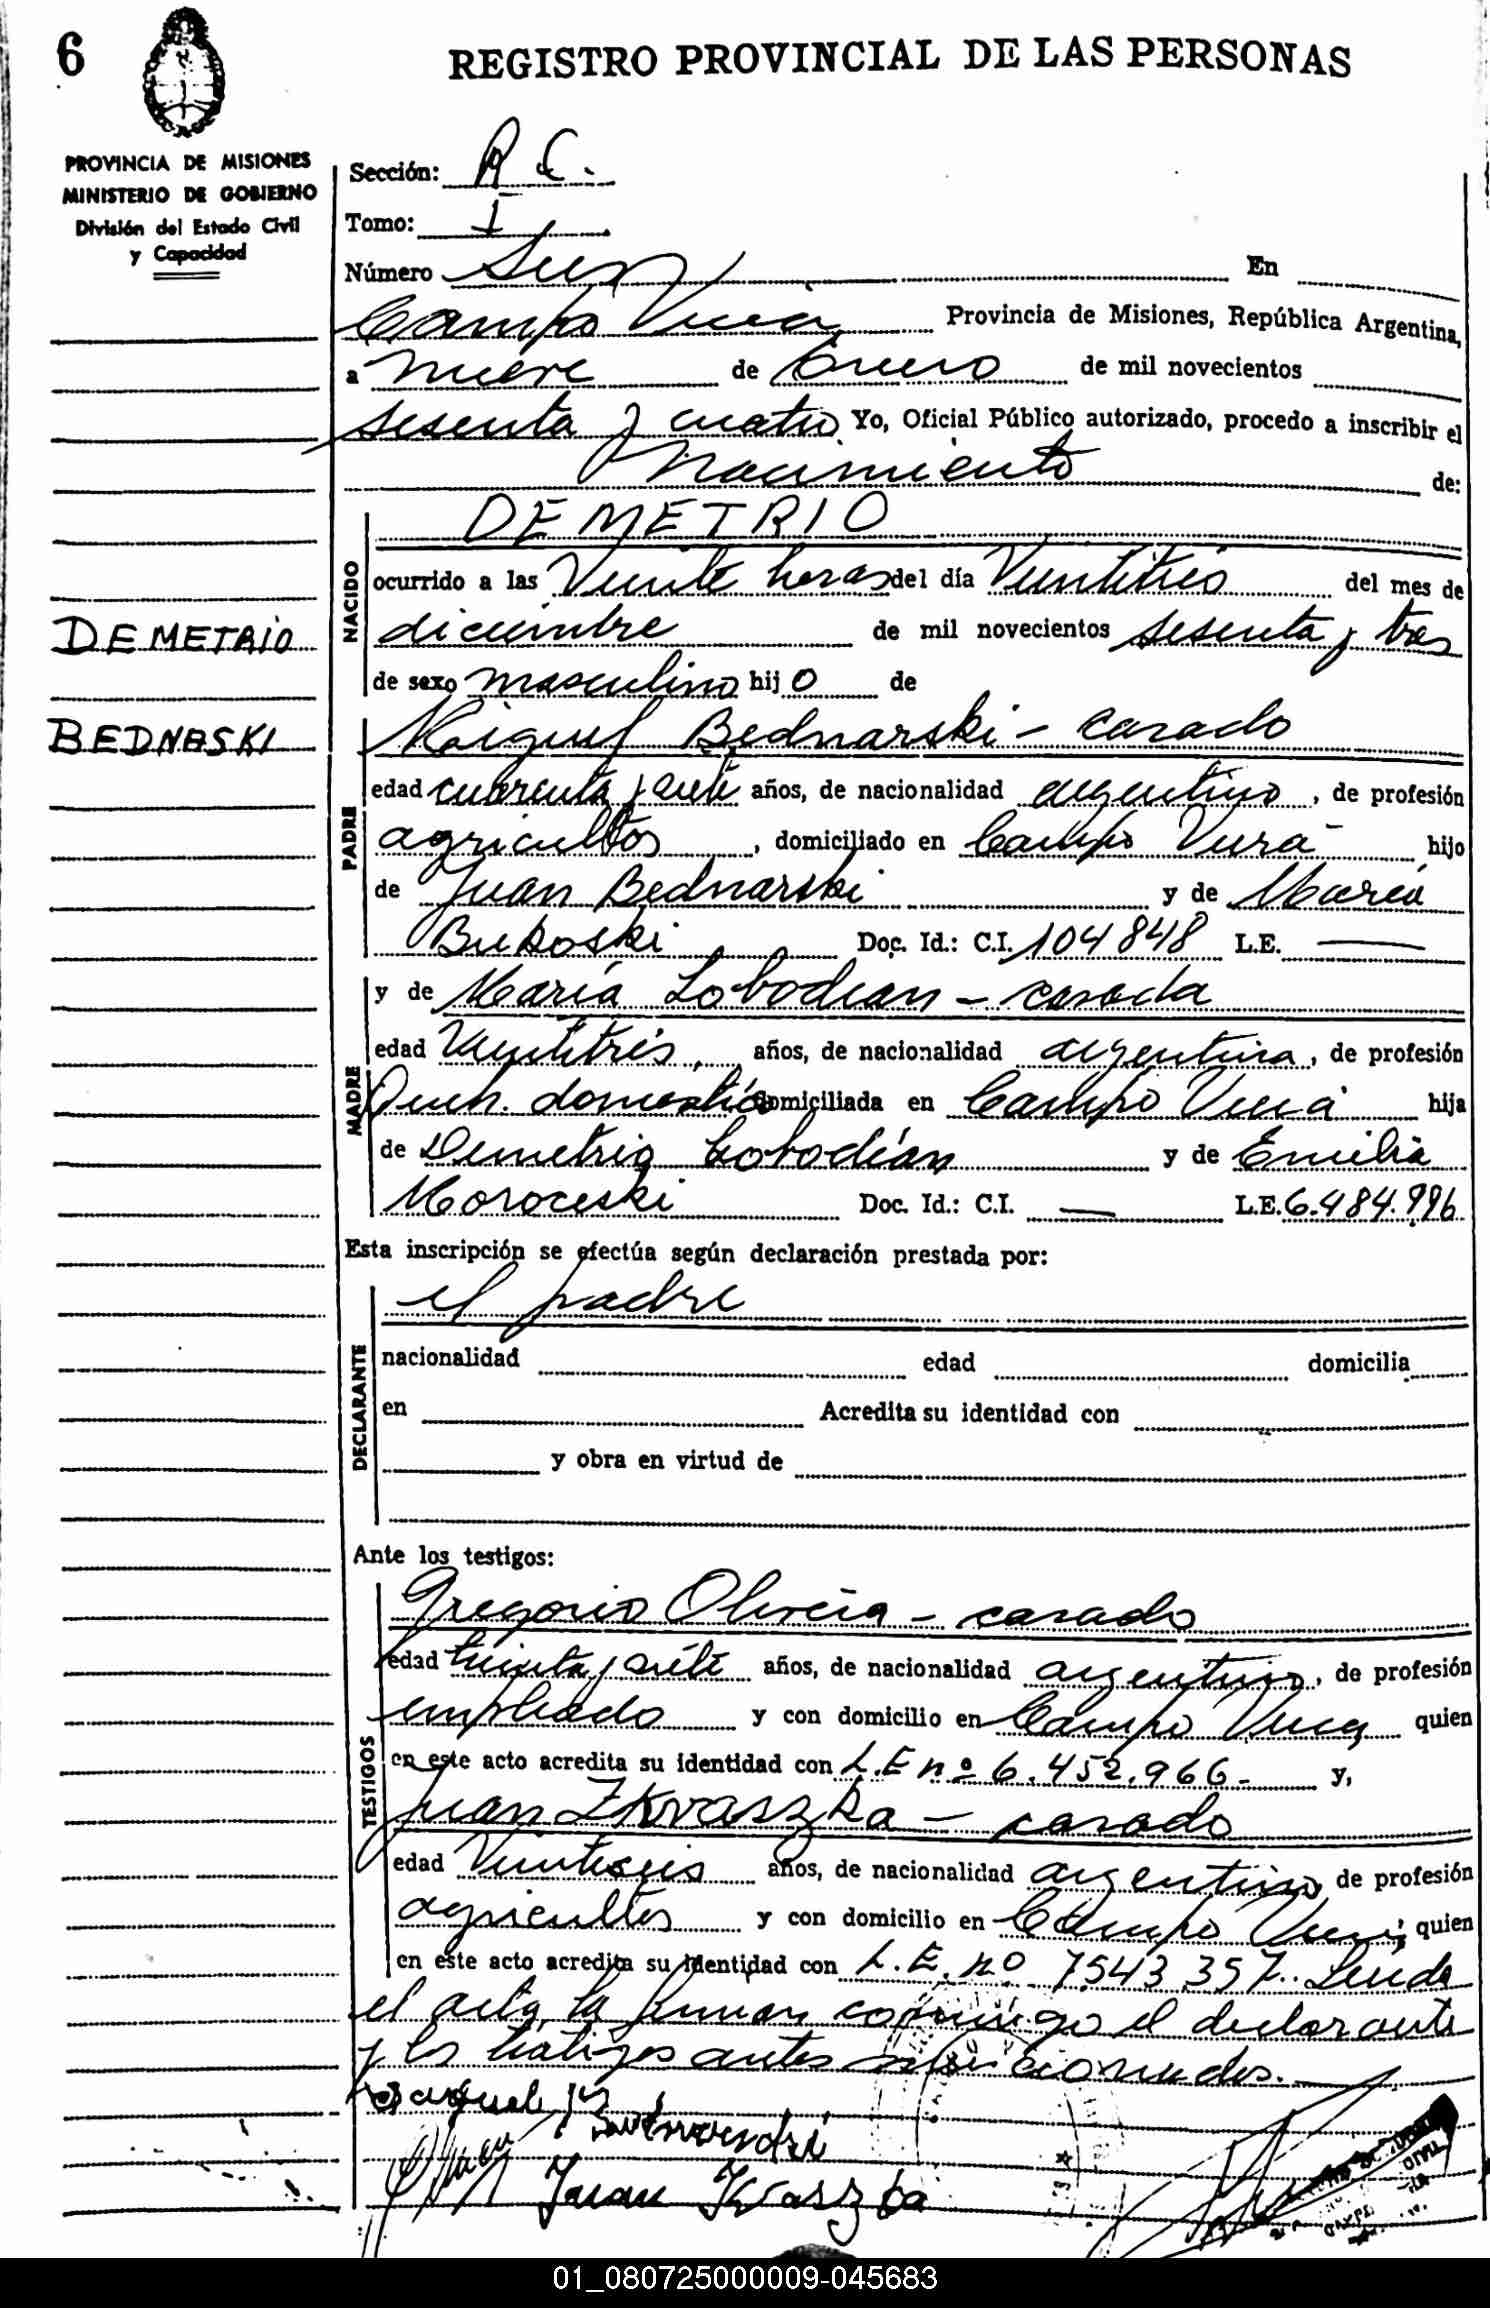 6
REGISTRO PROVINCIAL DE LAS PERSONAS
PROVINCIA DE MISIONES
MINISTERIO DE GOBIERNO
División del Estado Civil
y Capacidad
Sección: R C.
Tomo: I
Número Seis En
Campo Viera Provincia de Misiones, República Argentina,
a nueve de Enero de mil novecientos
sesenta y cuatro Yo, Oficial Público autorizado, procedo a inscribir el
Nacimiento de:
DEMETRIO
NACIDO
ocurrido a las Veinte horas del día Veintitrés del mes de
diciembre de mil novecientos sesenta y tres
DEMETRIO
de sexo masculino hij o de
BEDNASKI
Miguel Bednarski - casado
PADRE
edad cuarenta y siete años, de nacionalidad argentino, de profesión
agricultor, domiciliado en Campo Viera hijo
de Juan Bednarski y de María
Bukoski Doc. Id.: C.I. 104848 L.E. —
y de María Lobodian - casada
MADRE
edad Veintitrés, años, de nacionalidad argentina, de profesión
Queh. domésticos domiciliada en Campo Viera hija
de Demetrio Lobodián y de Emilia
Moroceski Doc. Id.: C.I. — L.E. 6.484.996
Esta inscripción se efectúa según declaración prestada por:
el padre
DECLARANTE
nacionalidad edad domicilia
en Acredita su identidad con
y obra en virtud de
Ante los testigos:
Gregorio Olivera - casado
TESTIGOS
edad treinta y siete años, de nacionalidad argentino, de profesión
empleado y con domicilio en Campo Viera quien
en este acto acredita su identidad con L.E nº 6.452.966- y,
Juan Zkvaszka - casado
edad Veintiseis años, de nacionalidad argentino, de profesión
agricultor y con domicilio en Campo Viera quien
en este acto acredita su identidad con L.E. nº 7543357. Leida
el acta, la firman conmigo el declarante
y los testigos antes mencionados.
Juan
01_080725000009-045683